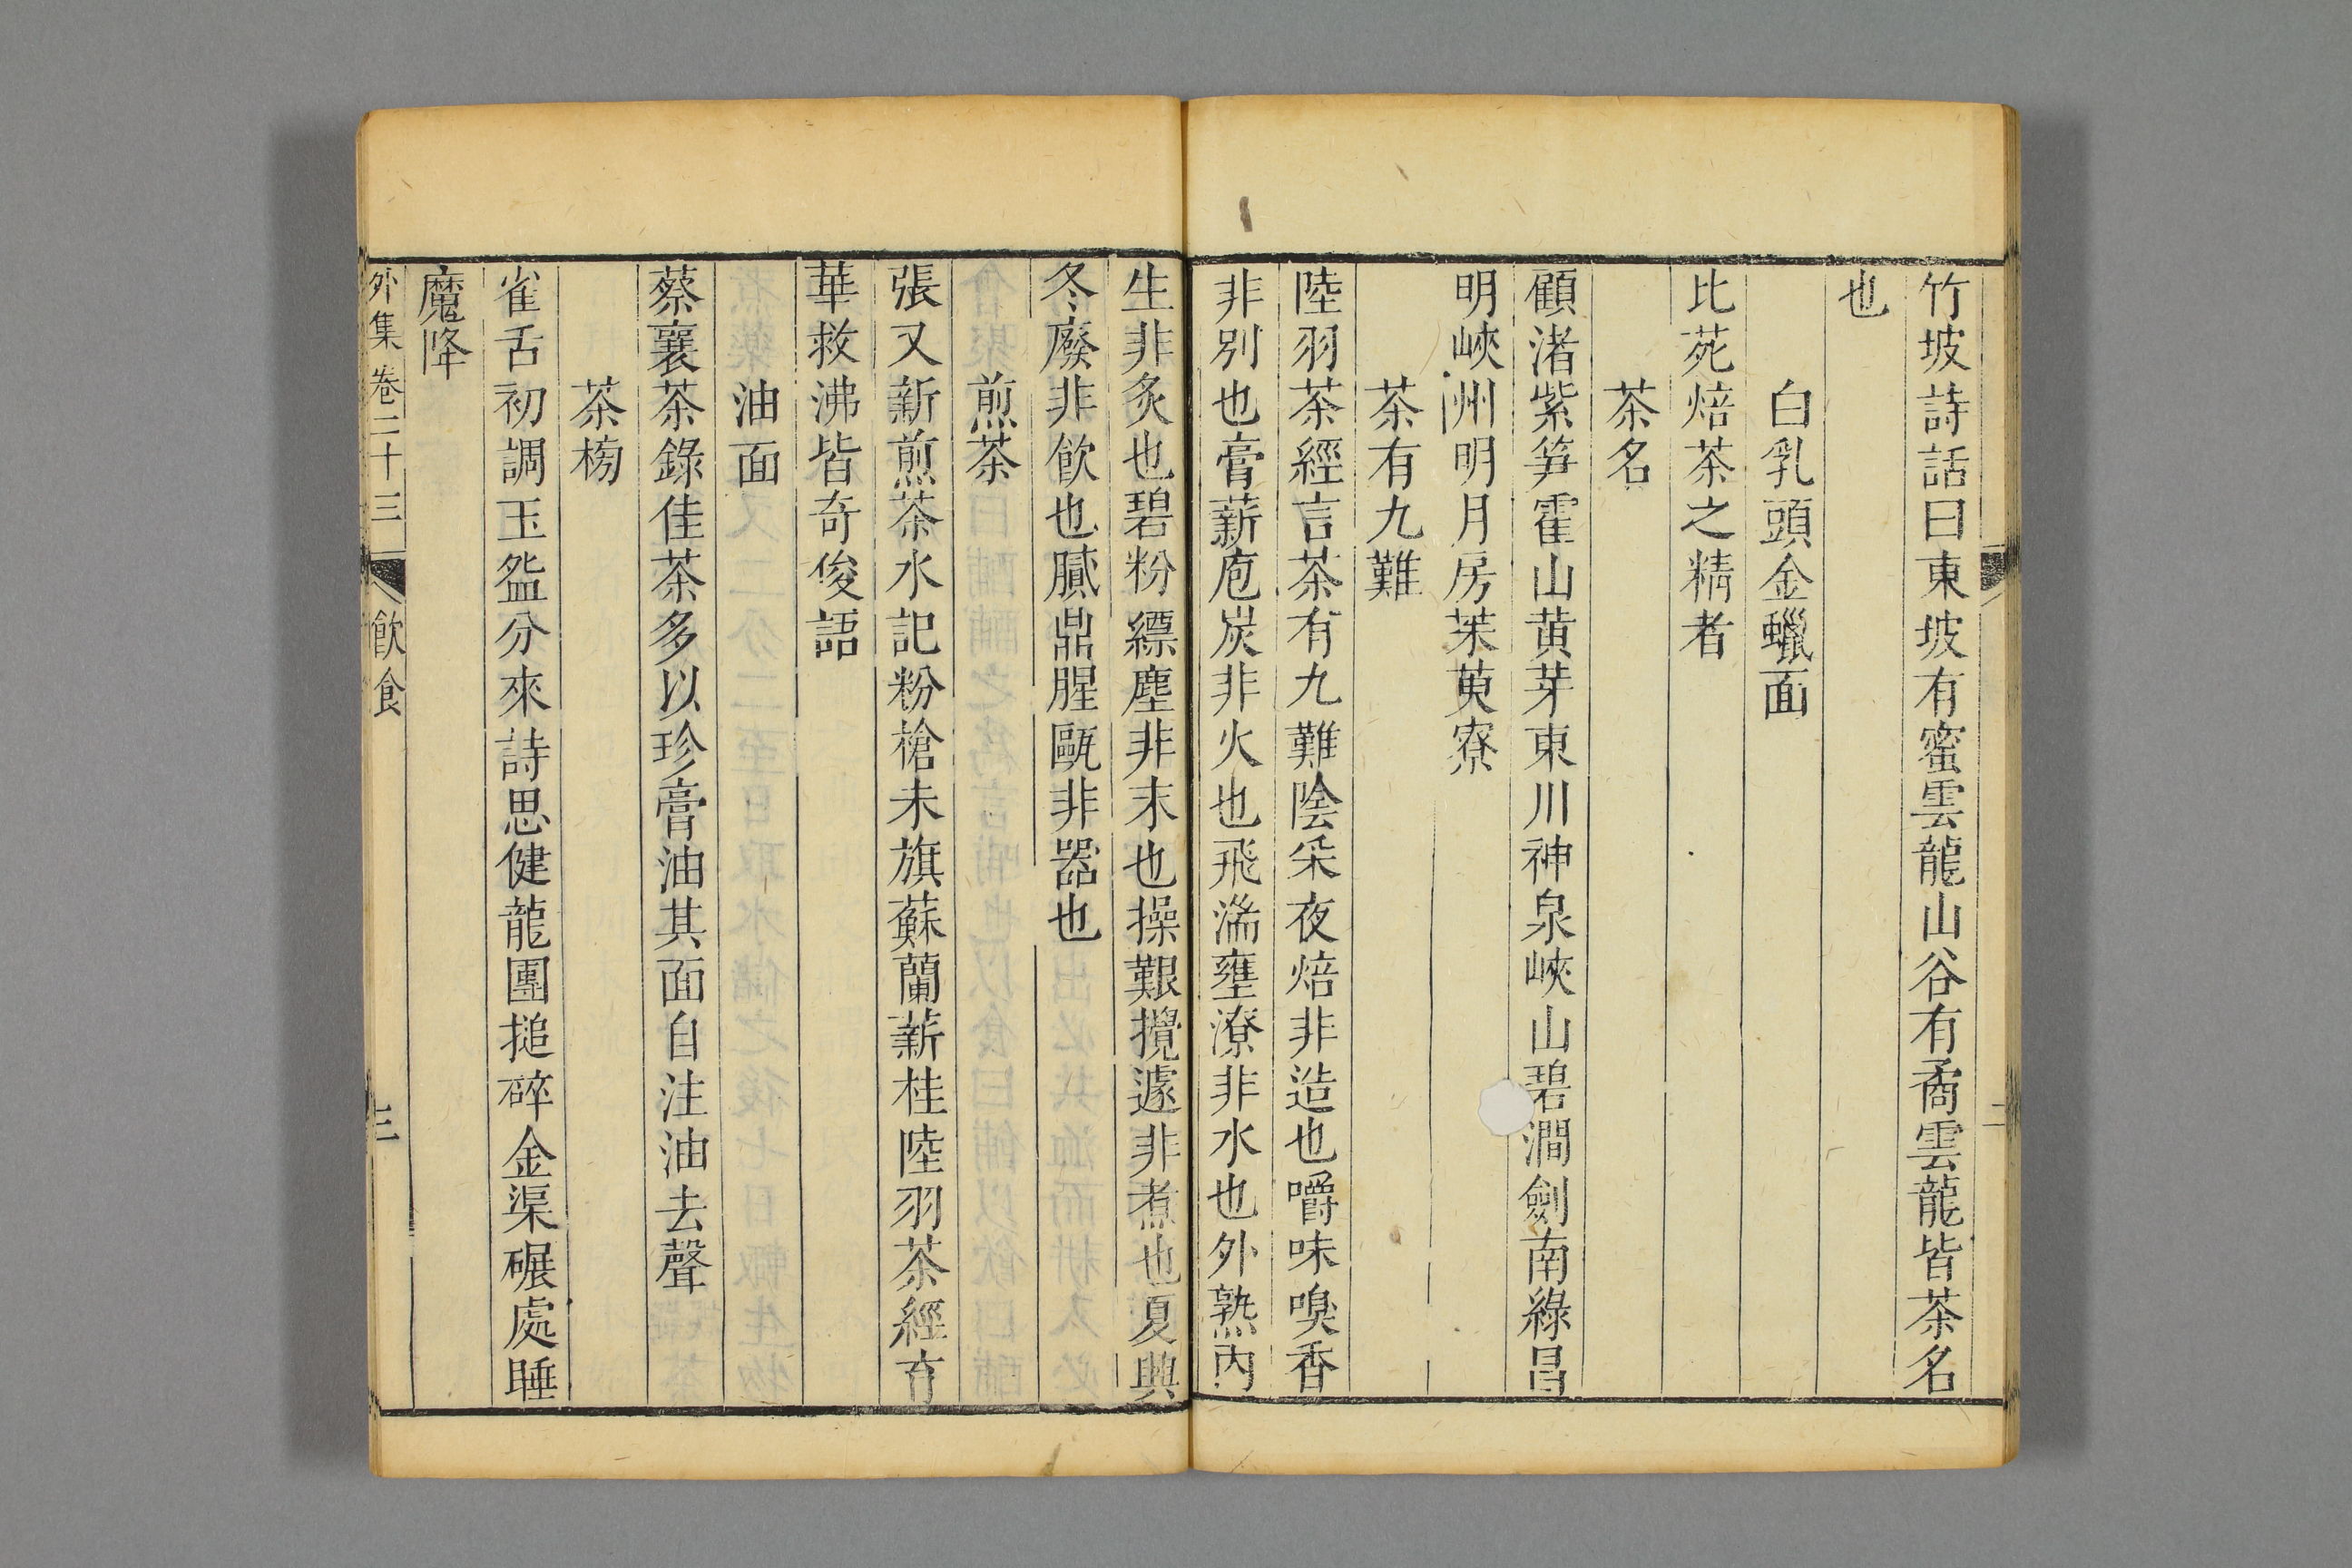 竹坡詩話曰東坡有蜜雲龍山谷有矞雲龍皆茶名
也
白乳頭金蠟面
比苑焙茶之精者
茶名
顧渚紫筍霍山黄芽東川神泉峽山碧澗劍南綠昌
明峽州明月房茱萸寮
茶有九難
陸羽茶經言茶有九難陰采夜焙非造也嚼味嗅香
非別也膏薪庖炭非火也飛湍壅潦非水也外熟內
生非炙也碧粉縹塵非末也操艱攪遽非煮也夏興
冬廢非飲也膩鼎腥甌非器也
煎茶
張又新煎茶水記粉槍末旗蘇蘭薪桂陸羽茶經育
華救沸皆奇俊語
油面
蔡襄茶錄佳茶多以珍膏油其面自注油去聲
茶榜
雀舌初調玉盌分來詩思健龍團搥碎金渠碾處睡
魔降
外集卷二十三 飲食 三